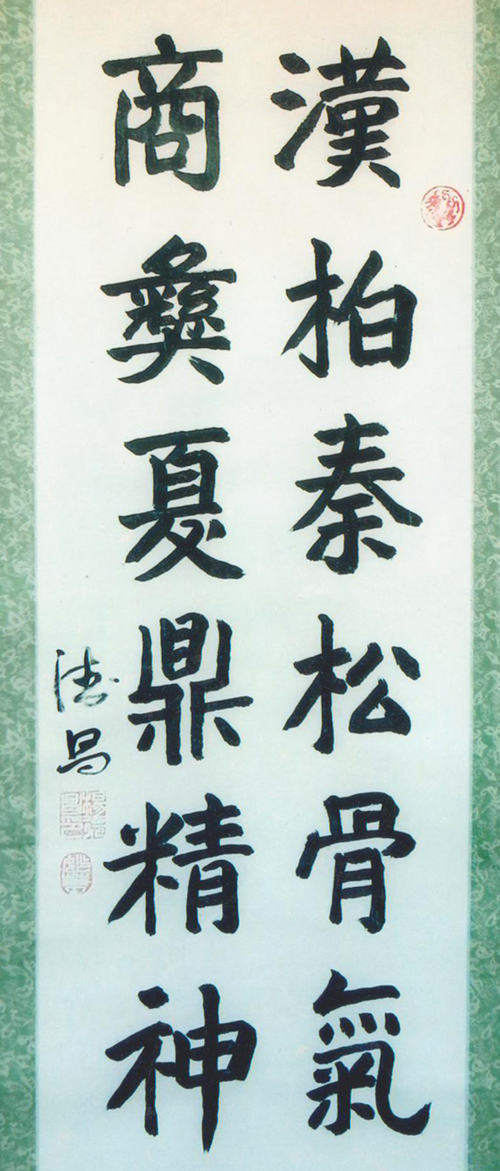 漢柏秦松骨氣
商彝夏鼎精神
德昌